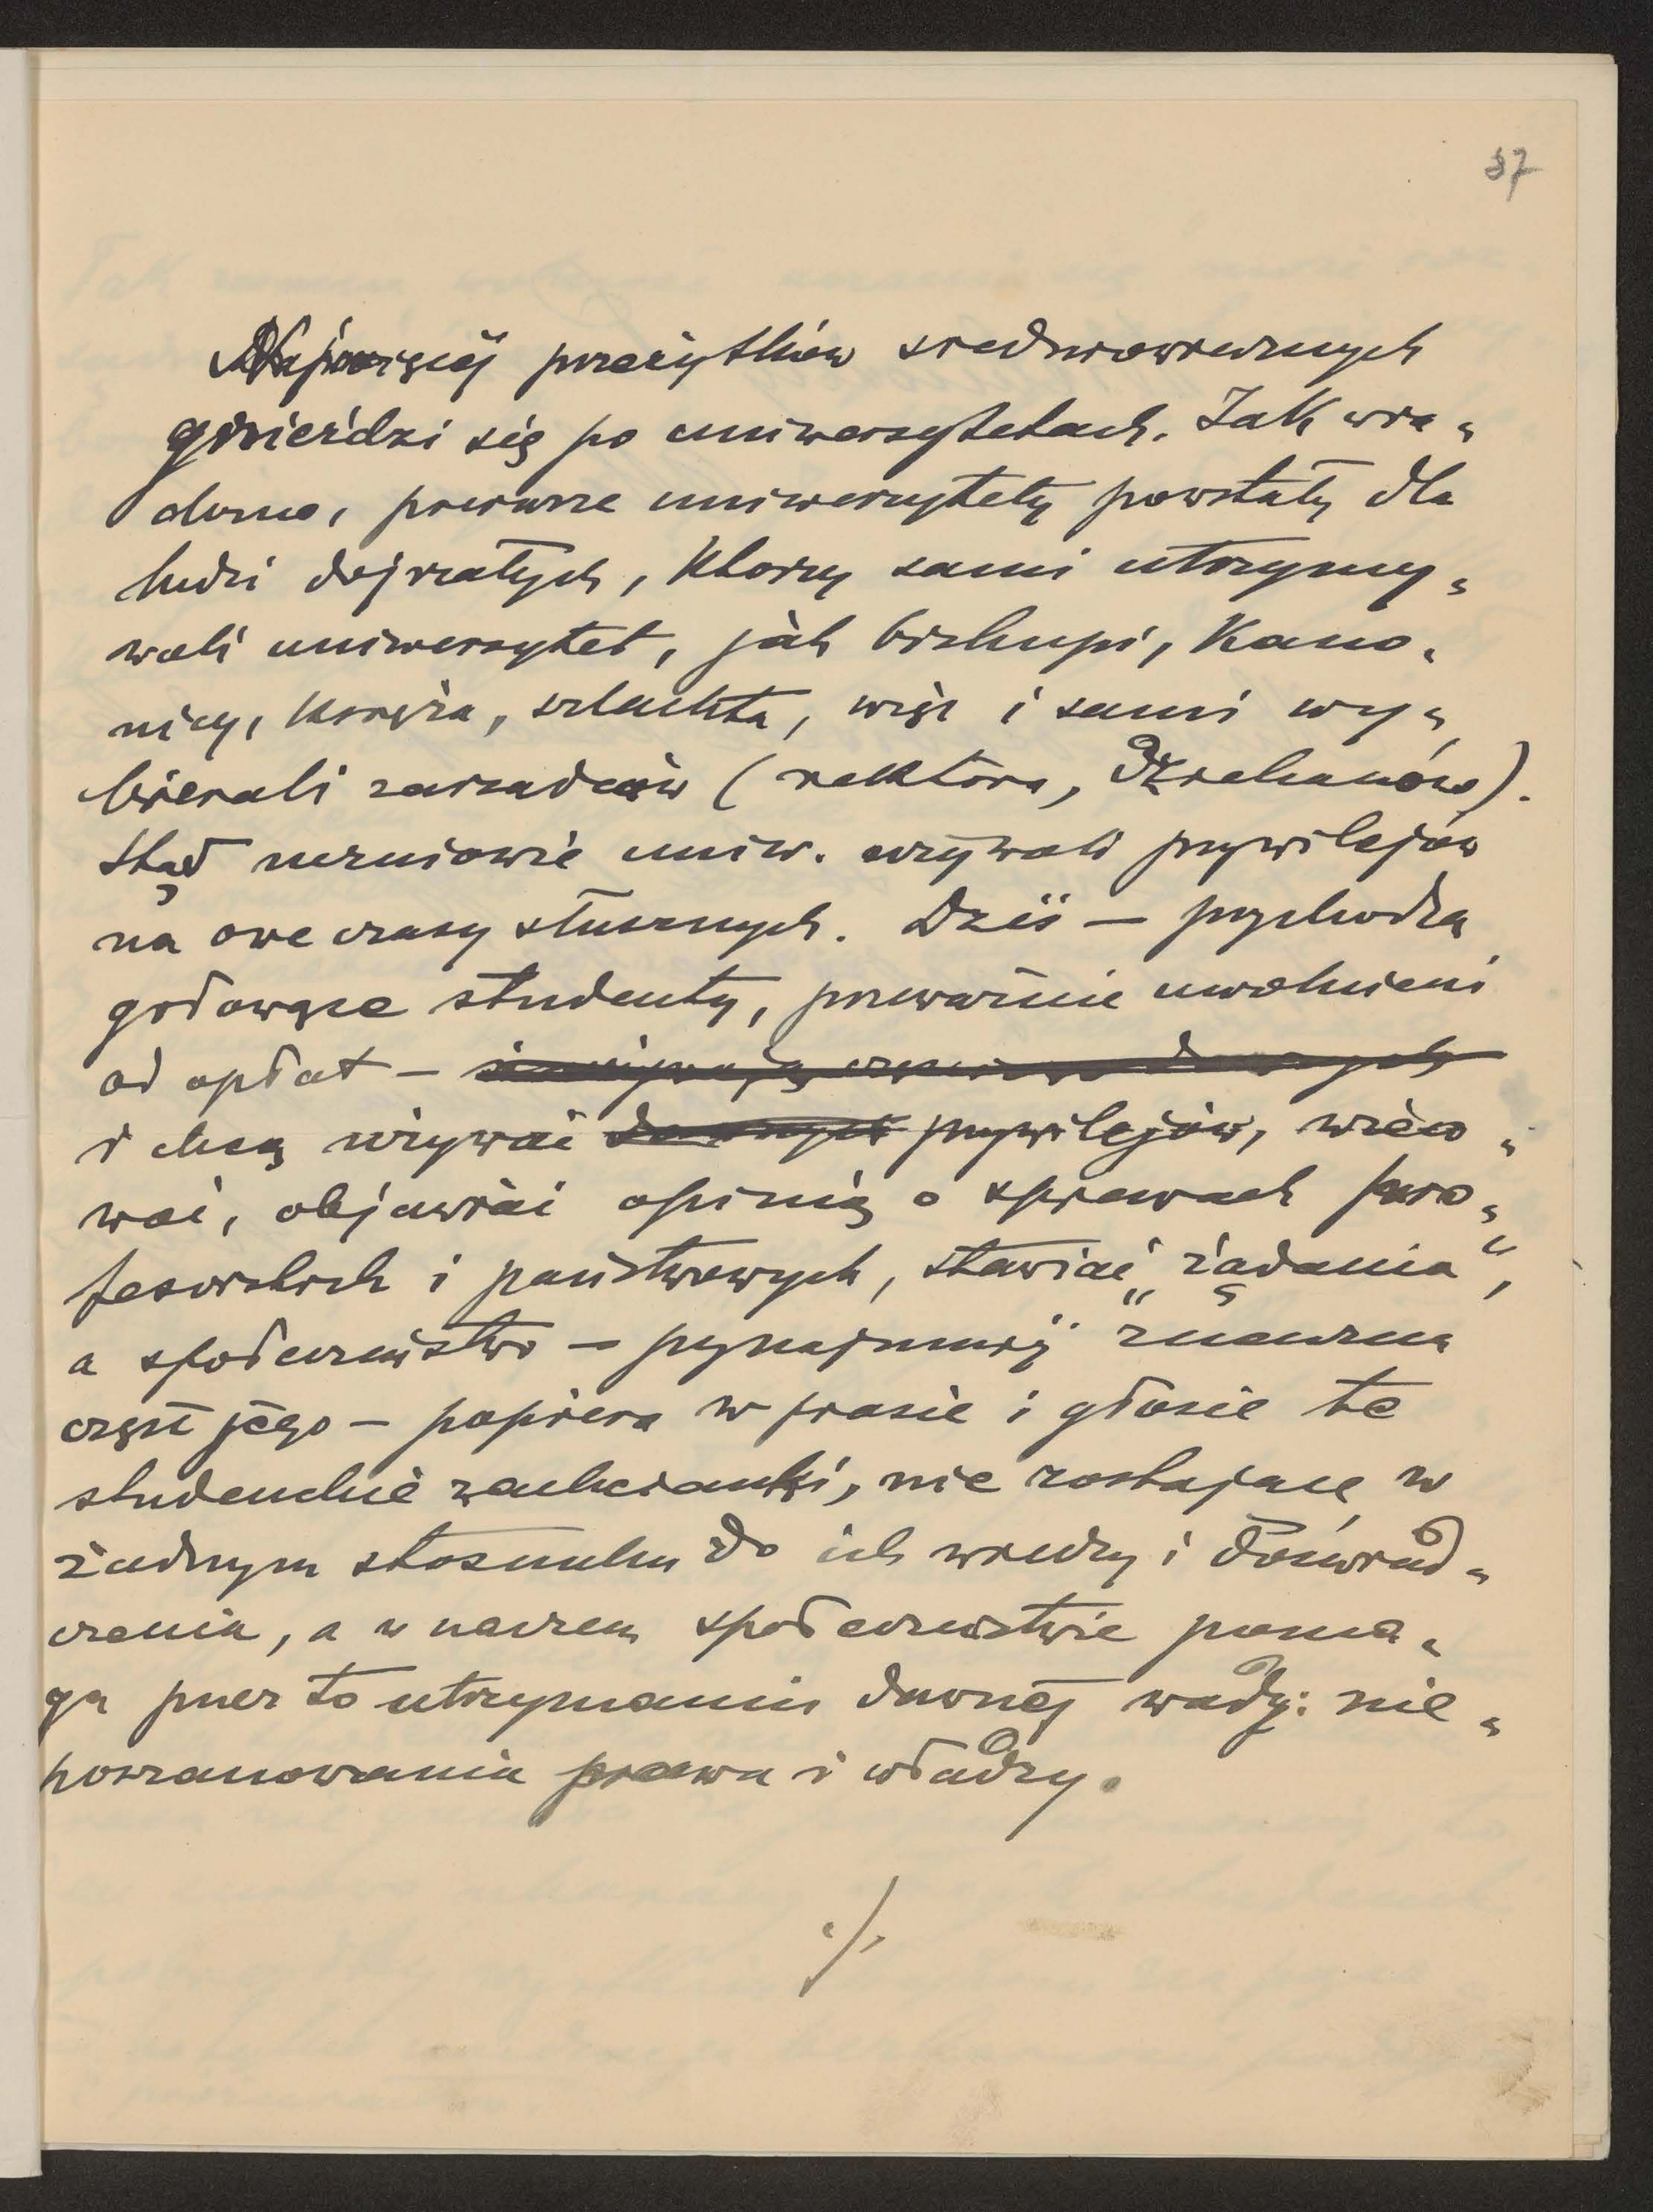 37
Najwięcej przeżytków średniowiecznych
gnieździ się po uniwersytetach. Jak wia„
domo, pierwsze uniwersytety powstały dla
ludzi dojrzałych, którzy sami utrzymy„
wali uniwersytet, jak biskupi, kano„
nicy, księża, szlachta, więc i sami wy„
bierali zarządców (rektora, dziekanów).
Stąd uczniowie uniw. używali przywilejów
na owe czasy słusznych. Dziś — przychodzą
gołowąse studenty, przeważnie uwolnieni
od opłat —
i chcą używać przywilejów, wieco„
wać, objawiać opinię o sprawach pro„
fesorskich i państwowych, stawiać „żądania“,
a społeczeństwo — przynajmniej znaczna
część jego — popiera w prasie i głosie te
studenckie zachcianki, nie zostające w
żadnym stosunku do ich wiedzy i doświad„
czenia, a w naszem społeczeństwie poma„
ga przez to utrzymaniu dawnej wady: nie„
poszanowania prawa i władzy.
./.